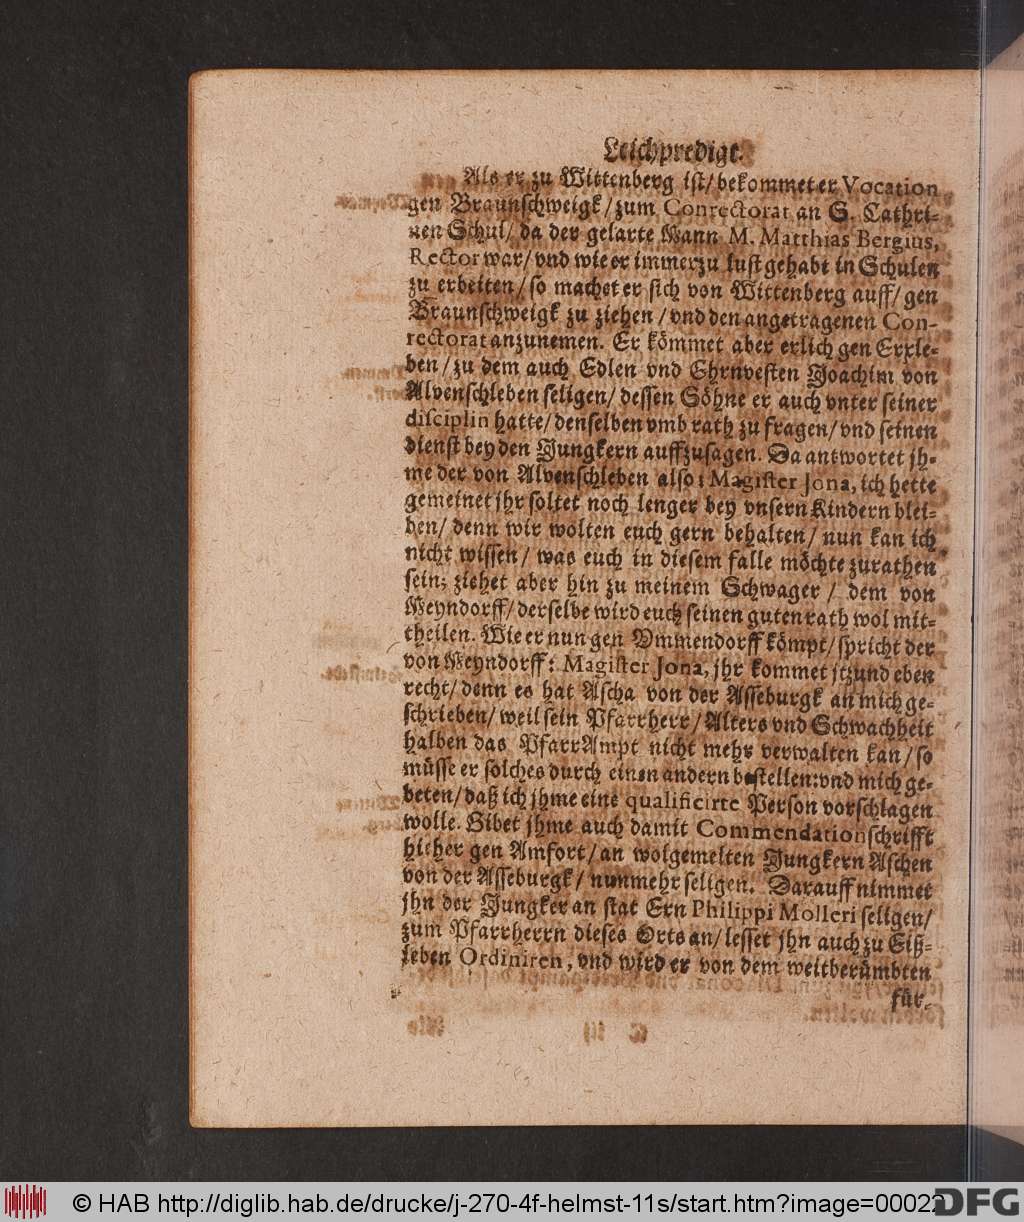 Leichpredigt.
Als er zu Wittenberg ist/ bekommet er Vocation
gen Braunschweigk/ zum Conrectorat an S. Cathri-
nen Schul/ da der gelarte Mann M. Matthias Bergius,
Rector war/ vnd wie er immerzu lust gehabt in Schulen
zu erbeiten/ so machet er sich von Wittenberg auff/ gen
Braunschweigk zu ziehen/ vnd den angetragenen Con-
rectorat anzunemen. Er kömmet aber erlich gen Erxle-
ben/ zu dem auch Edlen vnd Ehrnvesten Joachim von
Alvenschleben seligen/ dessen Söhne er auch vnter seiner
disciplin hatte/ denselben vmb rath zu fragen/ vnd seinen
dienst bey den Jungkern auffzusagen. Da antwortet jh-
me der von Alvenschleben also: Magister Jona, ich hette
gemeinet jhr soltet noch lenger bey vnsern Kindern blei-
ben/ denn wir wolten euch gern behalten/ nun kan ich
nicht wissen/ was euch in diesem falle möchte zurathen
sein; ziehet aber hin zu meinem Schwager/ dem von
Meyndorff/ derselbe wird euch seinen guten rath wol mit-
theilen. Wie er nun gen Vmmendorff kömpt/ spricht der
von Meyndorff: Magister Jona, jhr kommet jtzund eben
recht/ denn es hat Ascha von der Asseburgk an mich ge-
schrieben/ weil sein Pfarrherr/ Alters vnd Schwachheit
halben das PfarrAmpt nicht mehr verwalten kan/ so
müsse er solches durch einen andern bestellen: vnd mich ge-
beten/ daß ich jhme eine qualificirte Person vorschlagen
wolle. Gibet jhme auch damit Commendationschrifft
hieher gen Amfort/ an wolgemelten Jungkern Aschen
von der Asseburgk/ nunmehr seligen. Darauff nimmet
jhn der Jungker an stat Ern Philippi Molleri seligen/
zum Pfarrherrn dieses Orts an/ lesset jhn auch zu Eiß-
leben Ordiniren, vnd wird er von dem weitberümbten
für-
© HAB http://diglib.hab.de/drucke/j-270-4f-helmst-11s/start.htm?image=00022
DFG